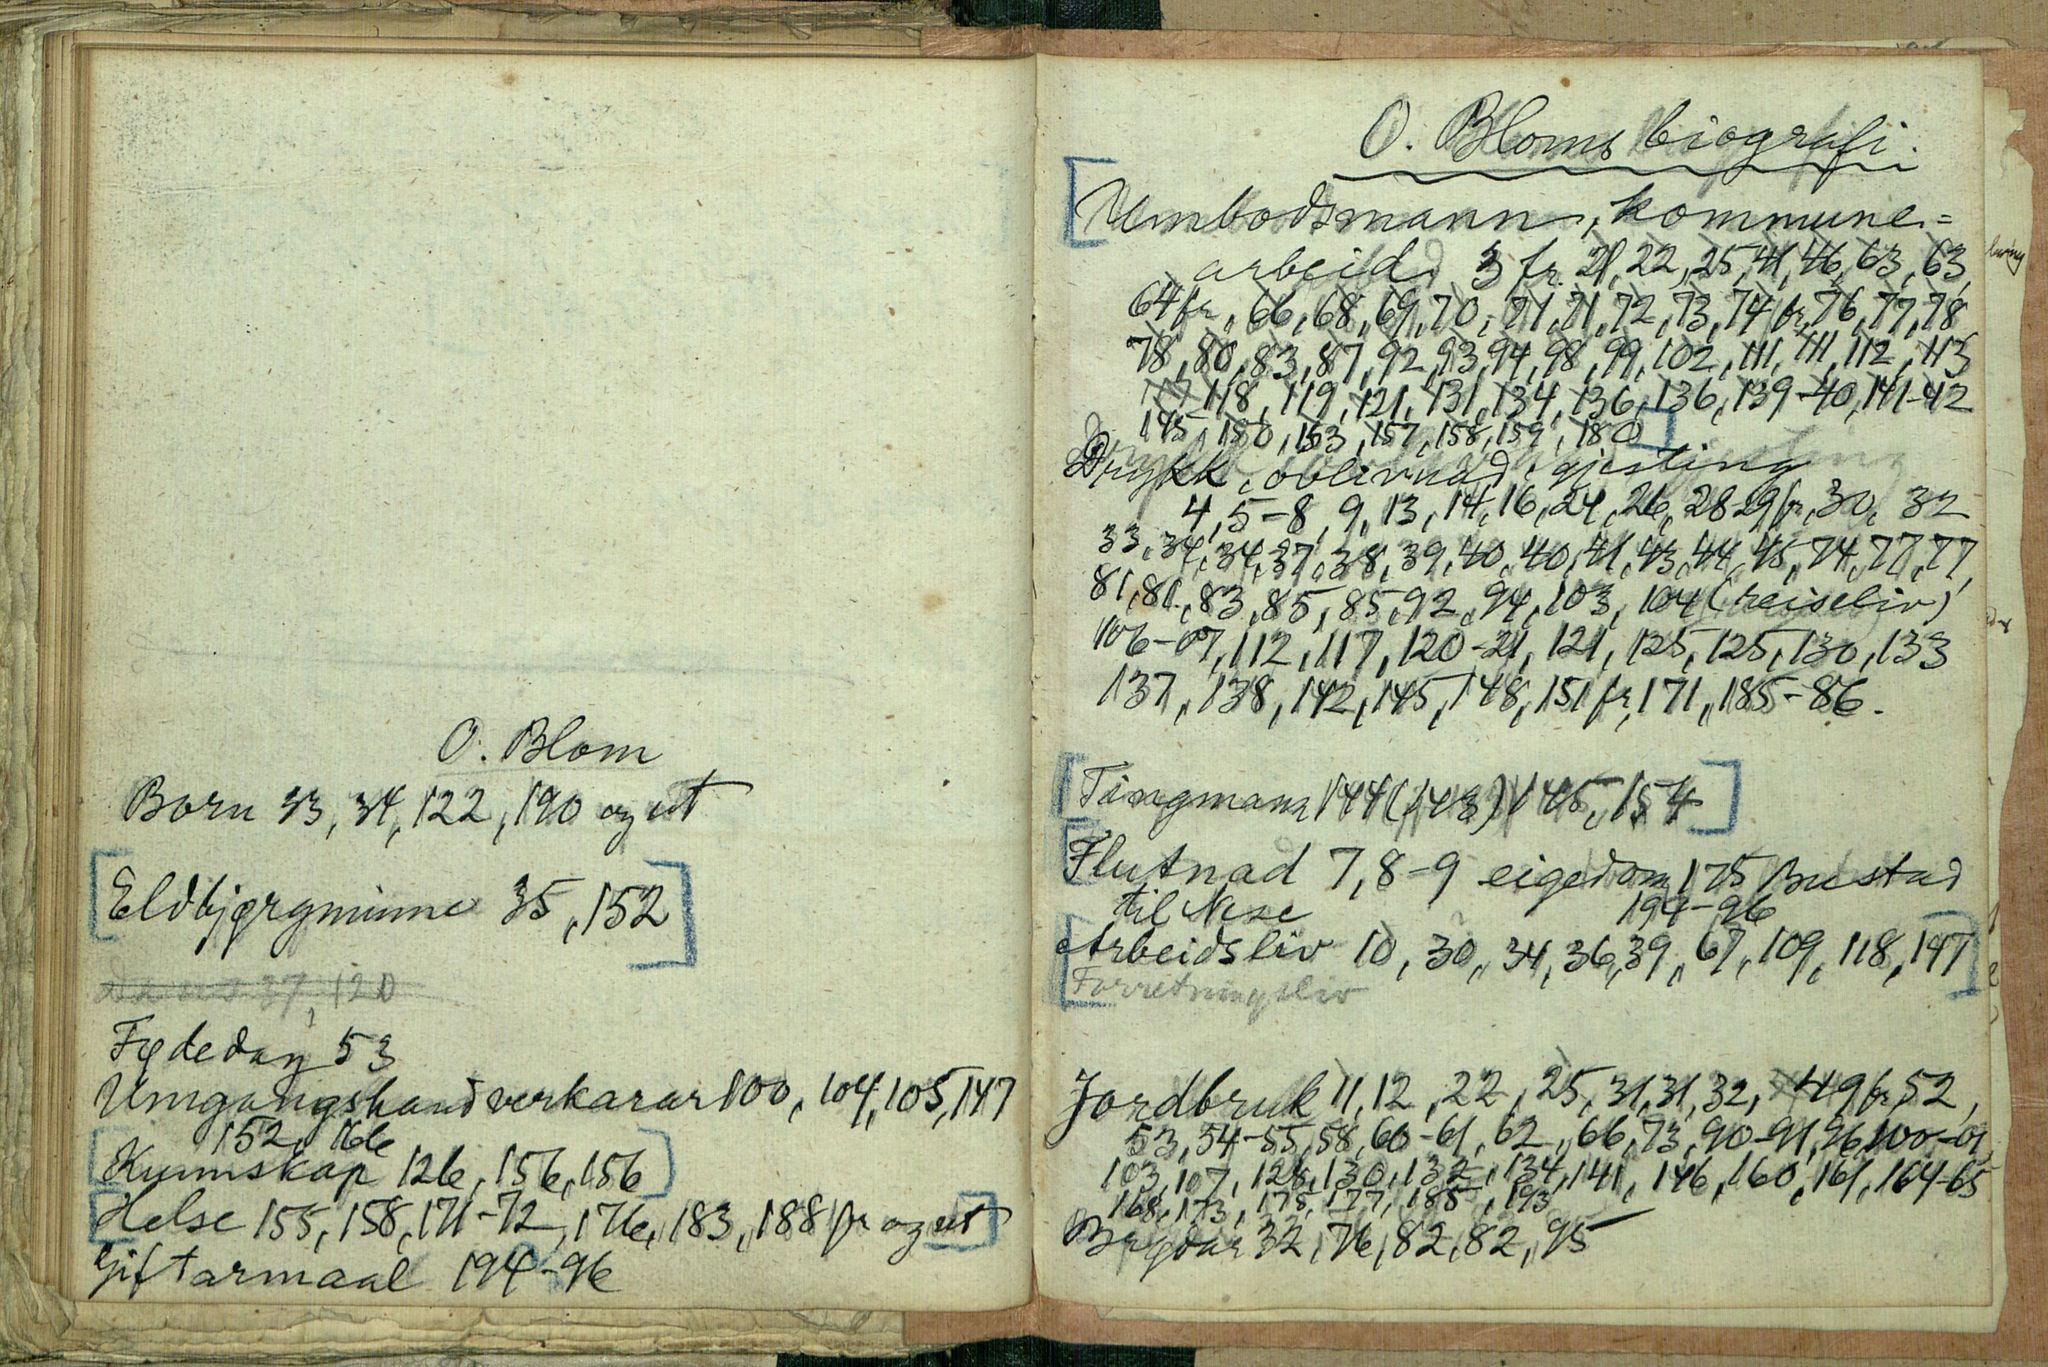 O. Blom
Born 33, 34, 122, 190 og ut
Eldbjørgminne 35, 152
37, 120
Fødedag 53
Umgangshandverkarar 100, 104, 105, 147
152, 166
Kunnskap 126, 156, 156
Helse 155, 158, 171-72, 176, 183, 188 fr og ut
Giftarmaal 194-96
O. Bloms biografi.
Umbodsmann, kommune=
arbeid 3 fr. 21, 22, 25, 41, 46, 63, 63,
64 fr, 66, 68, 69, 70, 71, 71, 72, 73, 74 fr, 76, 77, 78
78, 80, 83, 87, 92, 93, 94, 98, 99, 102, 111, 111, 112, 113
117 118, 119, 121, 131, 134, 136, 136, 139-40, 141-42
145, 150, 153, 157, 158, 159, 180
Drykk, gjesting
4, 5-8, 9, 13, 14, 16, 24, 26, 28-29 fr, 30, 32
33, 34, 34, 37, 38, 39, 40, 40, 41, 43, 44, 45, 74, 77, 77,
81, 81, 83, 85, 85, 92, 94, 103, 104 (reiseliv)
106-07, 112, 117, 120-21, 121, 125, 125, 130, 133
137, 138, 142, 145, 148, 151 fr, 171, 185-86.
Tingmann 144 (143) 145, 154
Flutnad 7, 8-9 eigedom 175 Bustad
til Nese 194-96
Arbeidsliv 10, 30, 34, 36, 39, 67, 109, 118, 147
Forretningsliv
Jordbruk 11, 12, 22, 25, 31, 31, 32, 49 fr, 52,
53, 54-55, 58, 60-61, 62, 66, 73, 90-91, 96, 100-01
103, 107, 128, 130, 132, 134, 141, 146, 160, 161, 164-65
168, 173, 175, 177, 185, 193
32, 76, 82, 82, 95